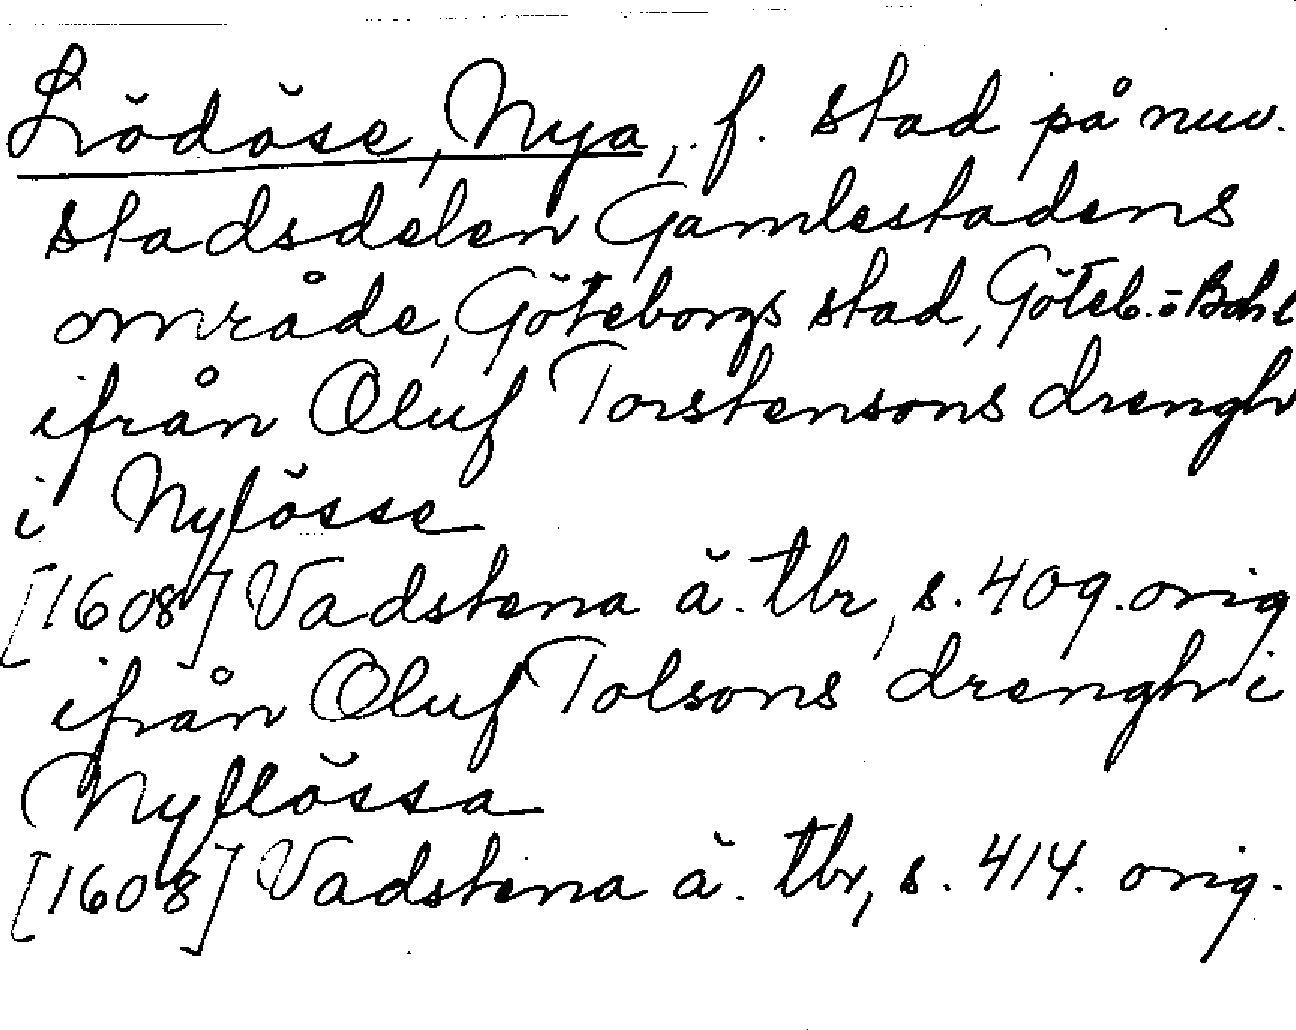 Lödöse, Nya, f. stad på nuv.
stadsdelen Gamlestadens
område, Göteborgs stad, Göteb. o Boh l
ifrån Oluf Torstensons drengh
i Nylösse
[1608] Vadstena ä. tbr, s. 409. orig
ifrån Oluf Tolsons drengh i
Nyllössa
[1608] Vadstena ä. tbr, s. 414. orig.